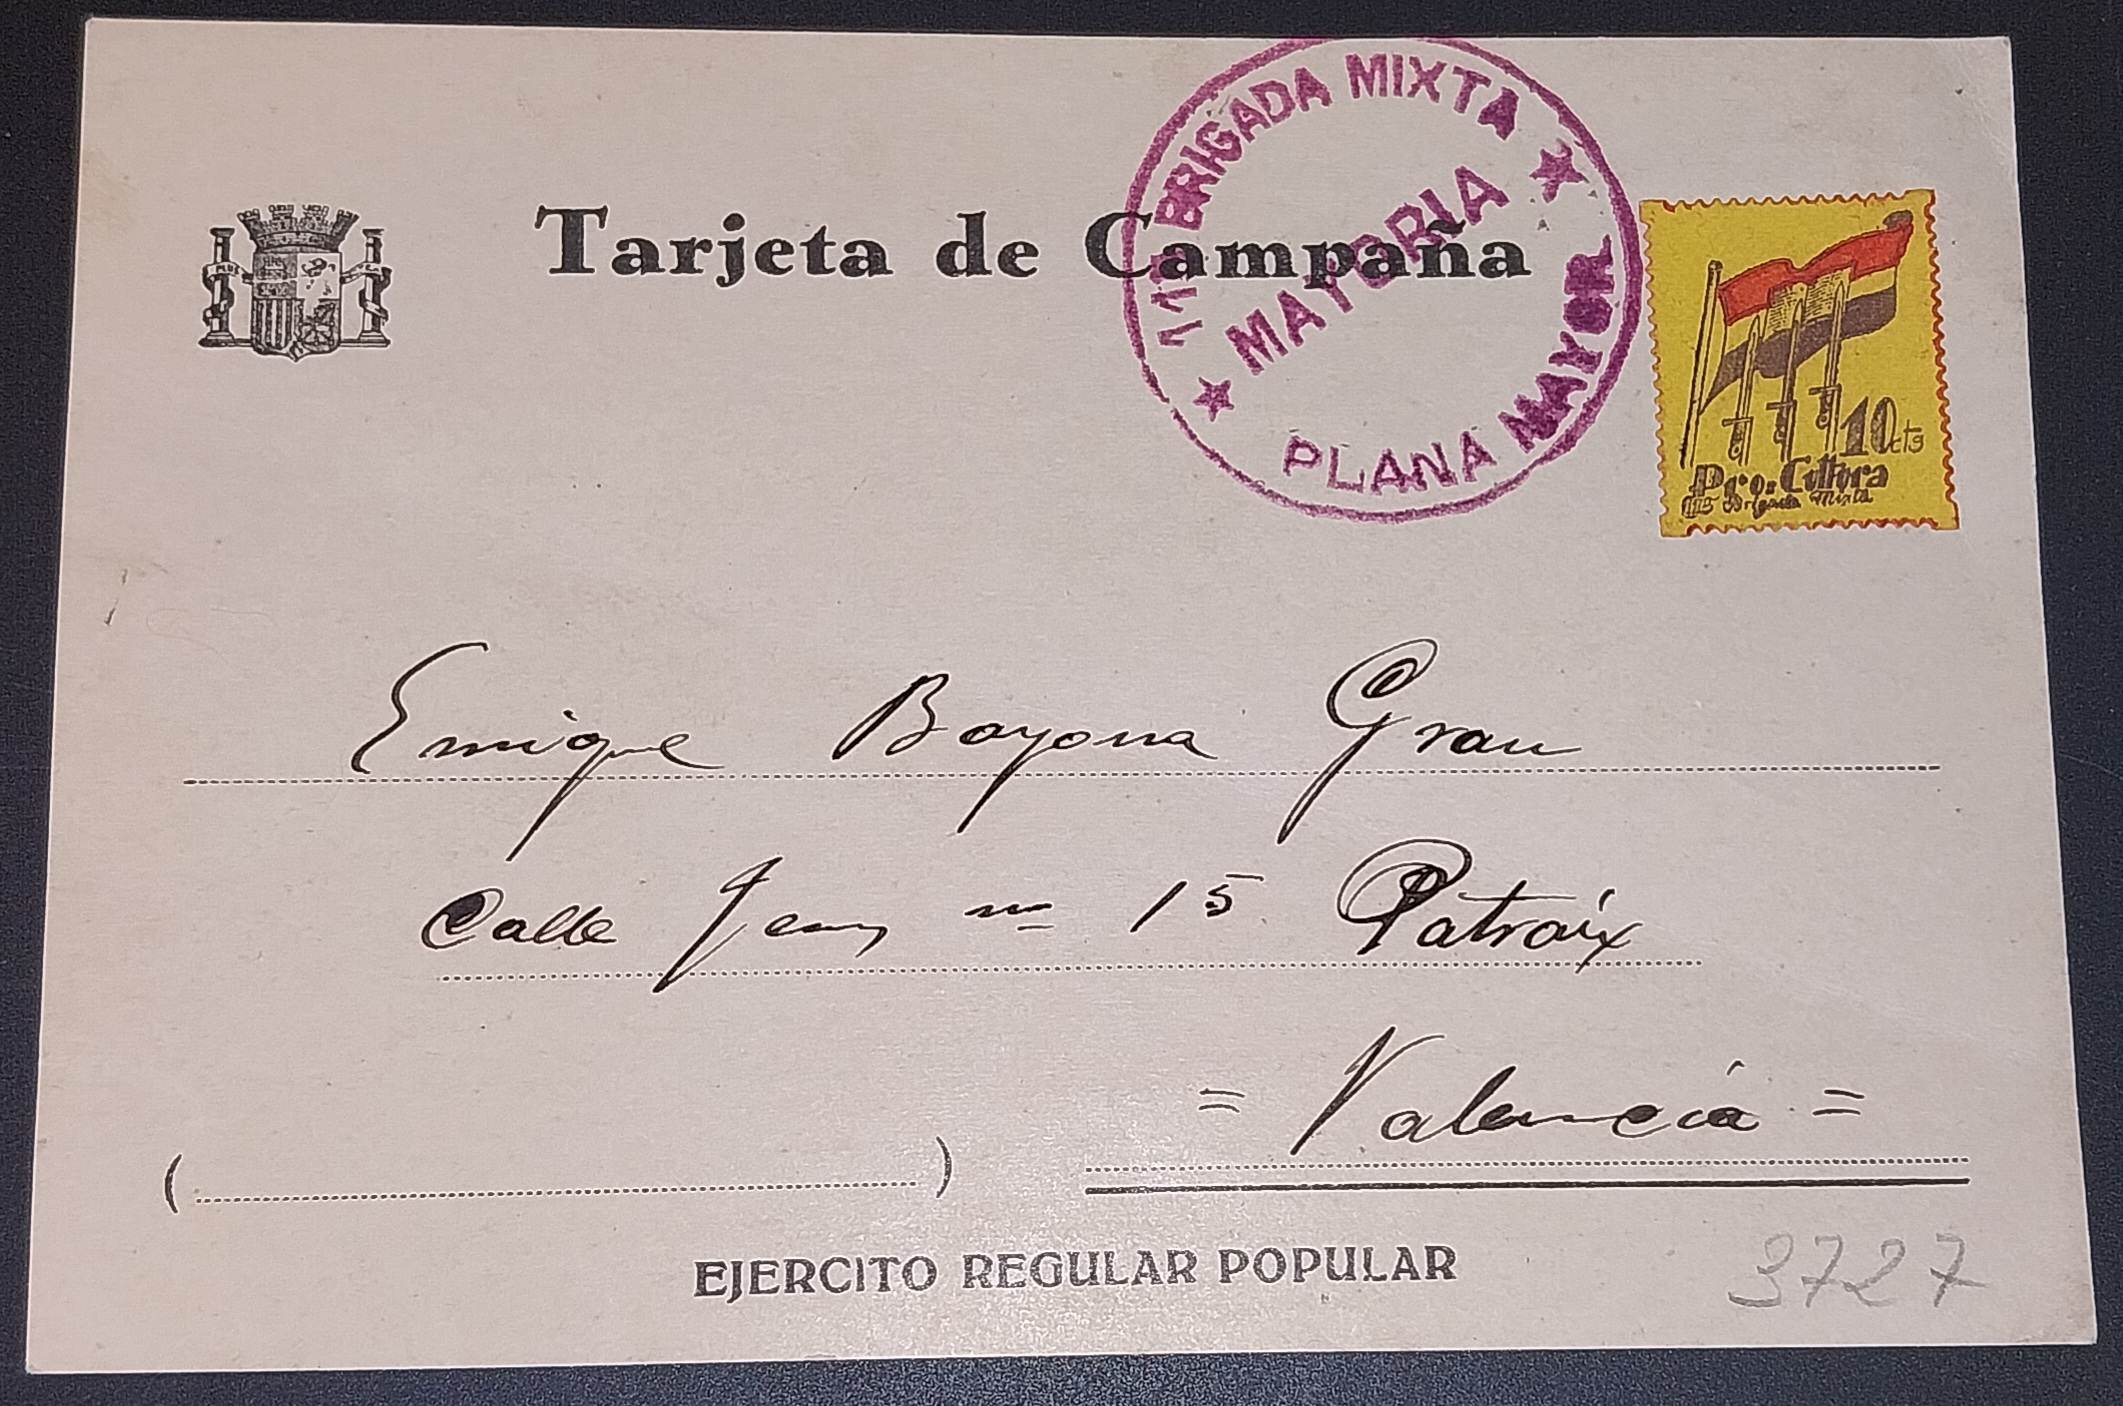 Tarjeta de Campaña
BRIGADA MIXTA
MAYORIA
PLANA MAYOR
PLUS
10 cts
Pro-Cultura
Brigada Mixta
Enrique Bayona Grau
Calle Jesus nº 15 Patraix
= Valencia =
( )
EJERCITO REGULAR POPULAR
3727